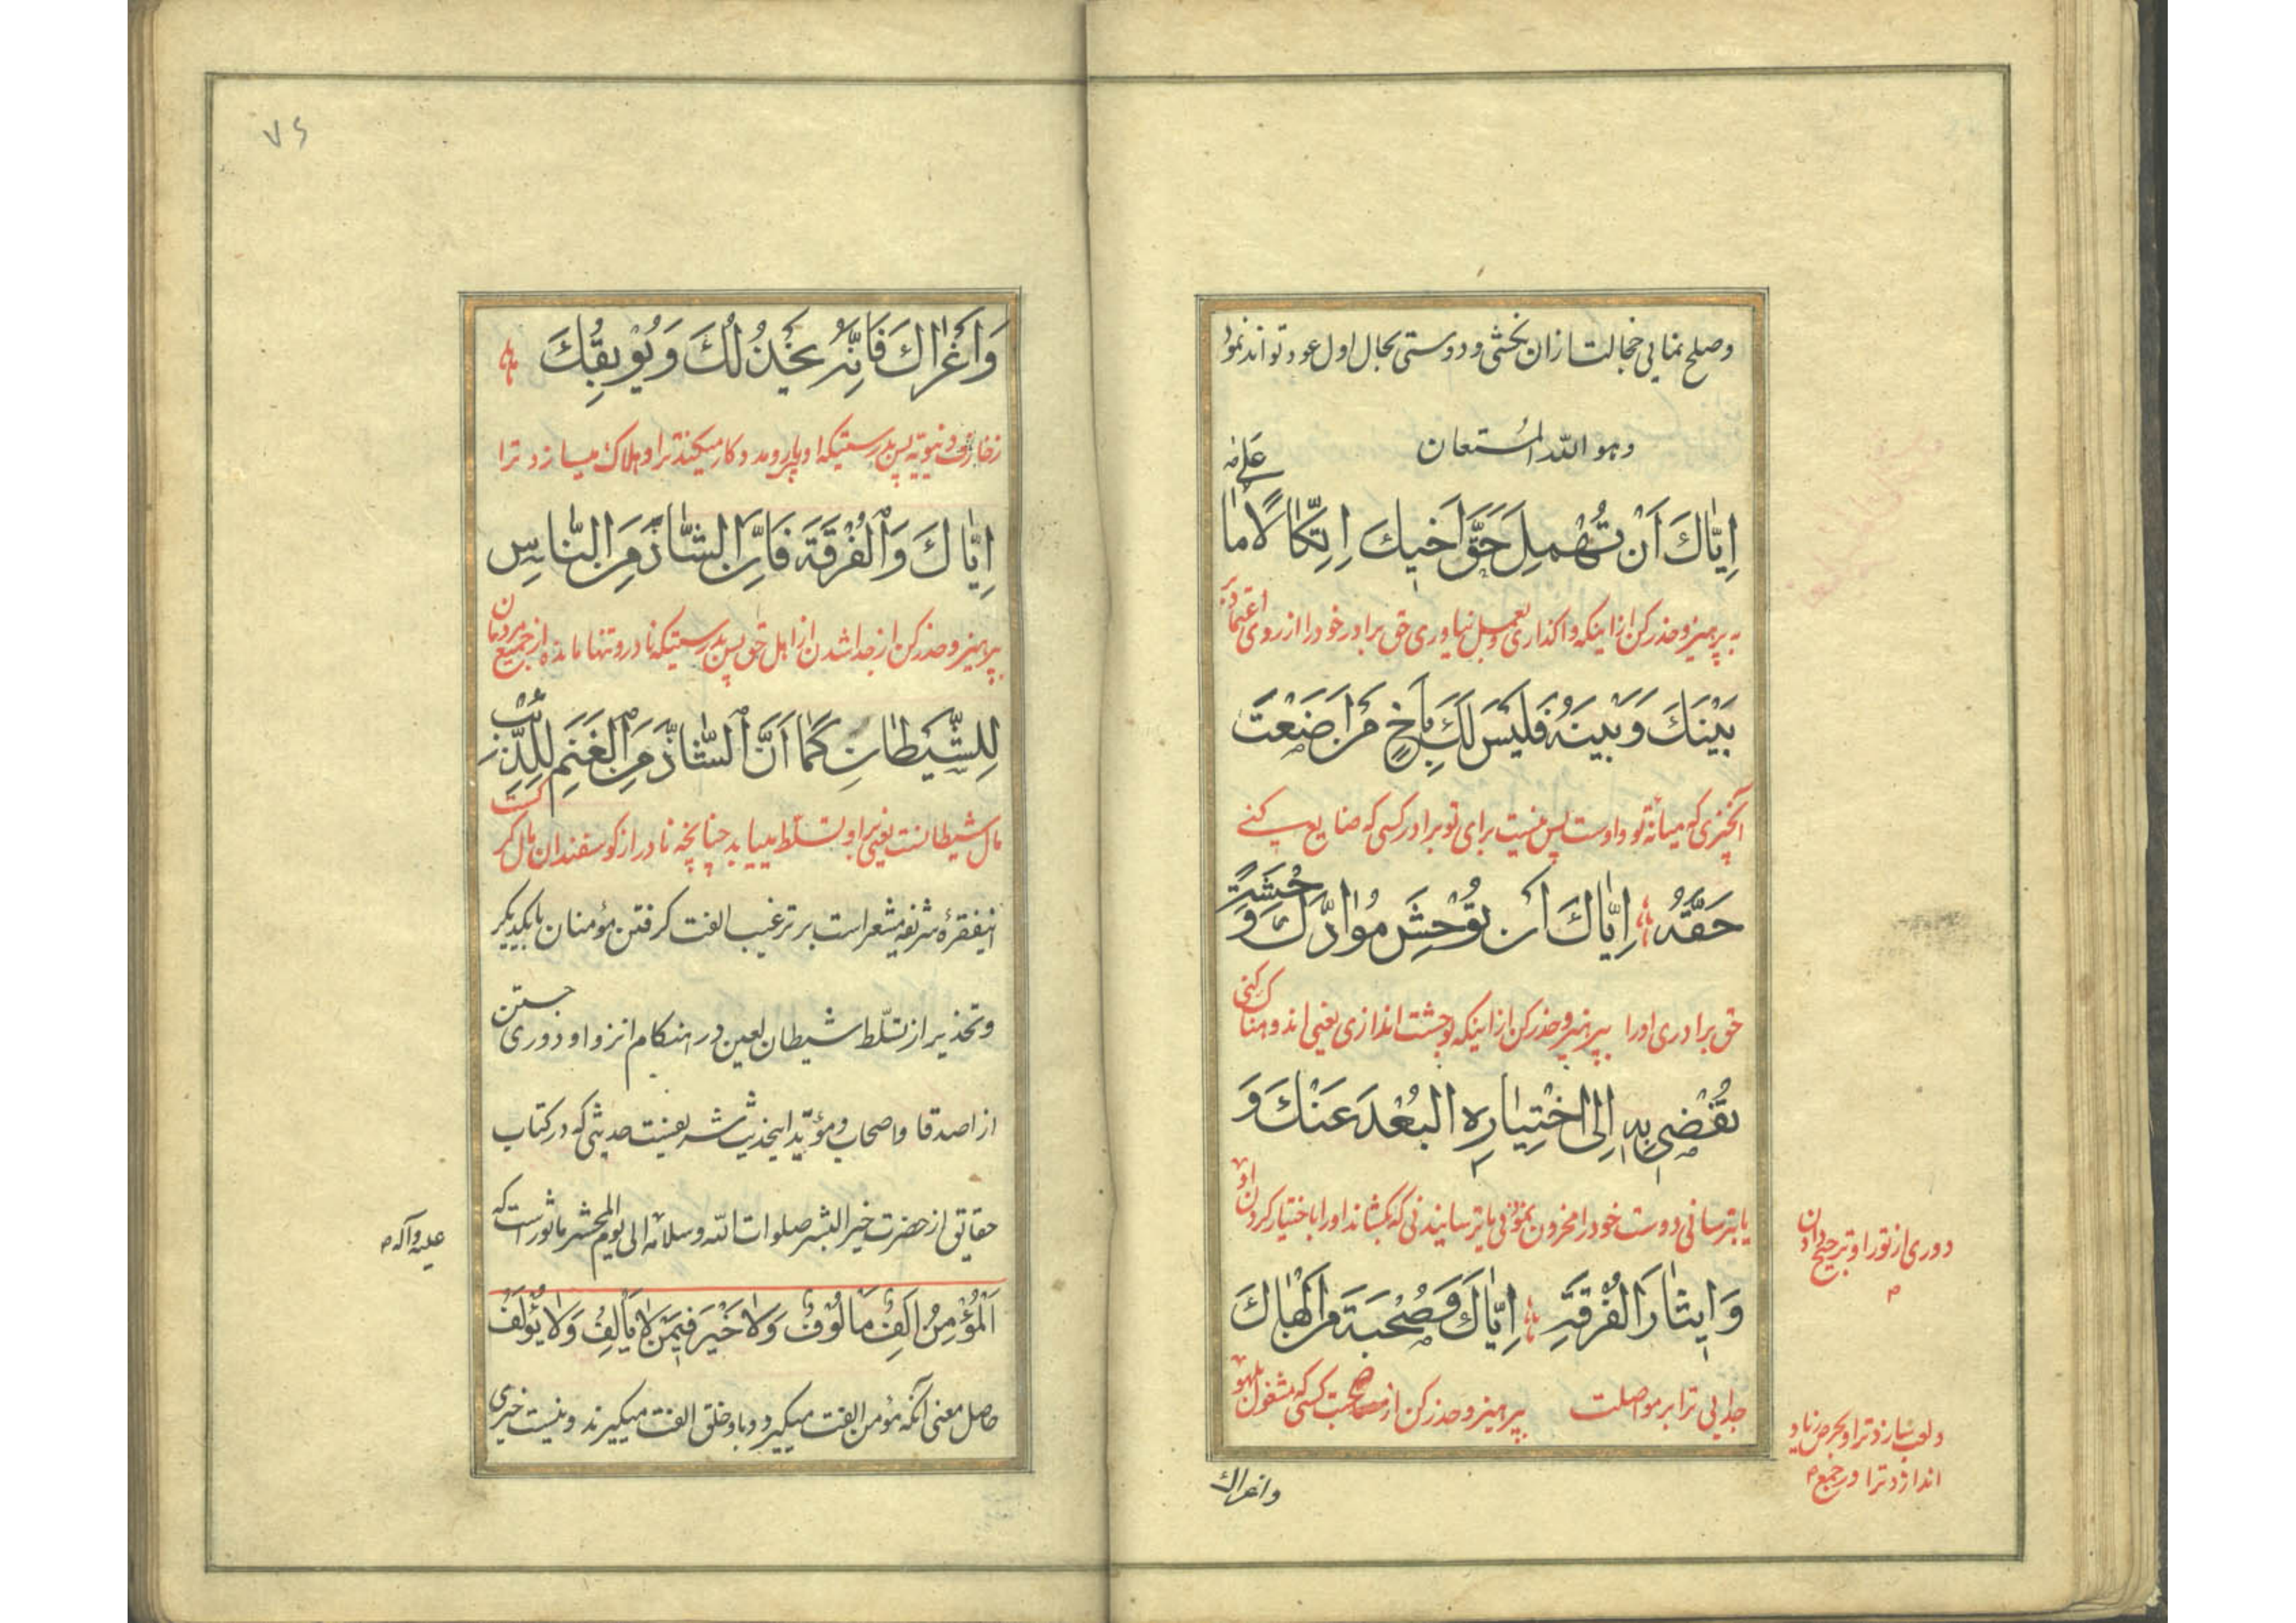 وصلح نمایی خجالت ازان بخشی و دوستی بحال اول عود تواند نمود
وهو الله المستعان
اِیّاكَ اَنْ تُهْمِلَ حَقَّ اَخیكَ اِتِّكالًا عَلیٰ ما
به پرهیز و حذر کن ازاینکه واکذاری و بعمل نیاوری حق برادر خود را از روی اعتماد بر
بَیْنَكَ وَ بَیْنَهُ فَلَیْسَ لَكَ بِاَخٍ مَنْ اَضَعْتَ
آنچیزی که میانهٔ تو و اوست پس نیست برای تو برادر کسی که ضایع کنے
حَقَّهُ اِیّاكَ اَن تُوْحِشَ مُوادَّكَ وَحْشَةً
حق برادری اورا بپرهیز و حذر کن ازاینکه بوحشت اندازی یعنی اندوهناک کنی
تُفْضی بِهِ اِلَی اخْتِیارِهِ الْبُعْدَ عَنْكَ وَ
یا بترسانی دوست خود را محزون نمودنی یا ترسانیدنی که بکشاند اورا باختیار کردن او
دوری از تو را و ترجیح دادن
وَ ایثارَ الْفُرْقَةِ اِیّاكَ وَ صُحْبَةَ مَنْ اَلْهاكَ
جدایی ترا بر مواصلت بپرهیز و حذر کن از مصاحبت کسی که مشغول بلهو
و لعب سازد ترا و بحرص زیاد
اندازد ترا در جمع
واغراك
۷۶
وَ اَغْراكَ فَاِنَّهُ یَخْذُلُكَ وَ یُوبِقُكَ
زخارف دنیویه پس بدرستیکه او بی‌یار و مددکار میکند ترا و هلاک میسازد ترا
اِیّاكَ وَ الْفُرْقَةَ فَاِنَّ الشّاذَّ مِنَ النّاسِ
بپرهیز و حذر کن از جدا شدن از اهل حق پس بدرستیکه نادر و تنها مانده از جمیع مردمان
لِلشَّیْطانِ كَما اَنَّ الشّاذَّ مِنَ الْغَنَمِ لِلذِّئْبِ
مال شیطانست یعنی بر او تسلّط مییابد چنانچه نادر از کوسفندان مال کرکست
اینفقرهٔ شریفه مشعر است بر ترغیب الفت کرفتن مؤمنان بایکدیکر
و تحذیر از تسلّط شیطان لعین در هنکام انزوا و دوری جستن
از اصدقا و اصحاب و مؤیّد اینحدیث شریفست حدیثی که در کتاب
حقایق از حضرت خیر البشر صلوات الله وسلامه الی یوم المحشر ماثور است که
علیه وآله
اَلْمُؤْمِنُ اَلِفٌ مَألُوفٌ وَلا خَیْرَ فیمَنْ لا یَألِفُ وَلا یُؤْلَفُ
حاصل معنی آنکه مؤمن الفت میکیرد و باو خلق الفت میکیرند و نیست خیری